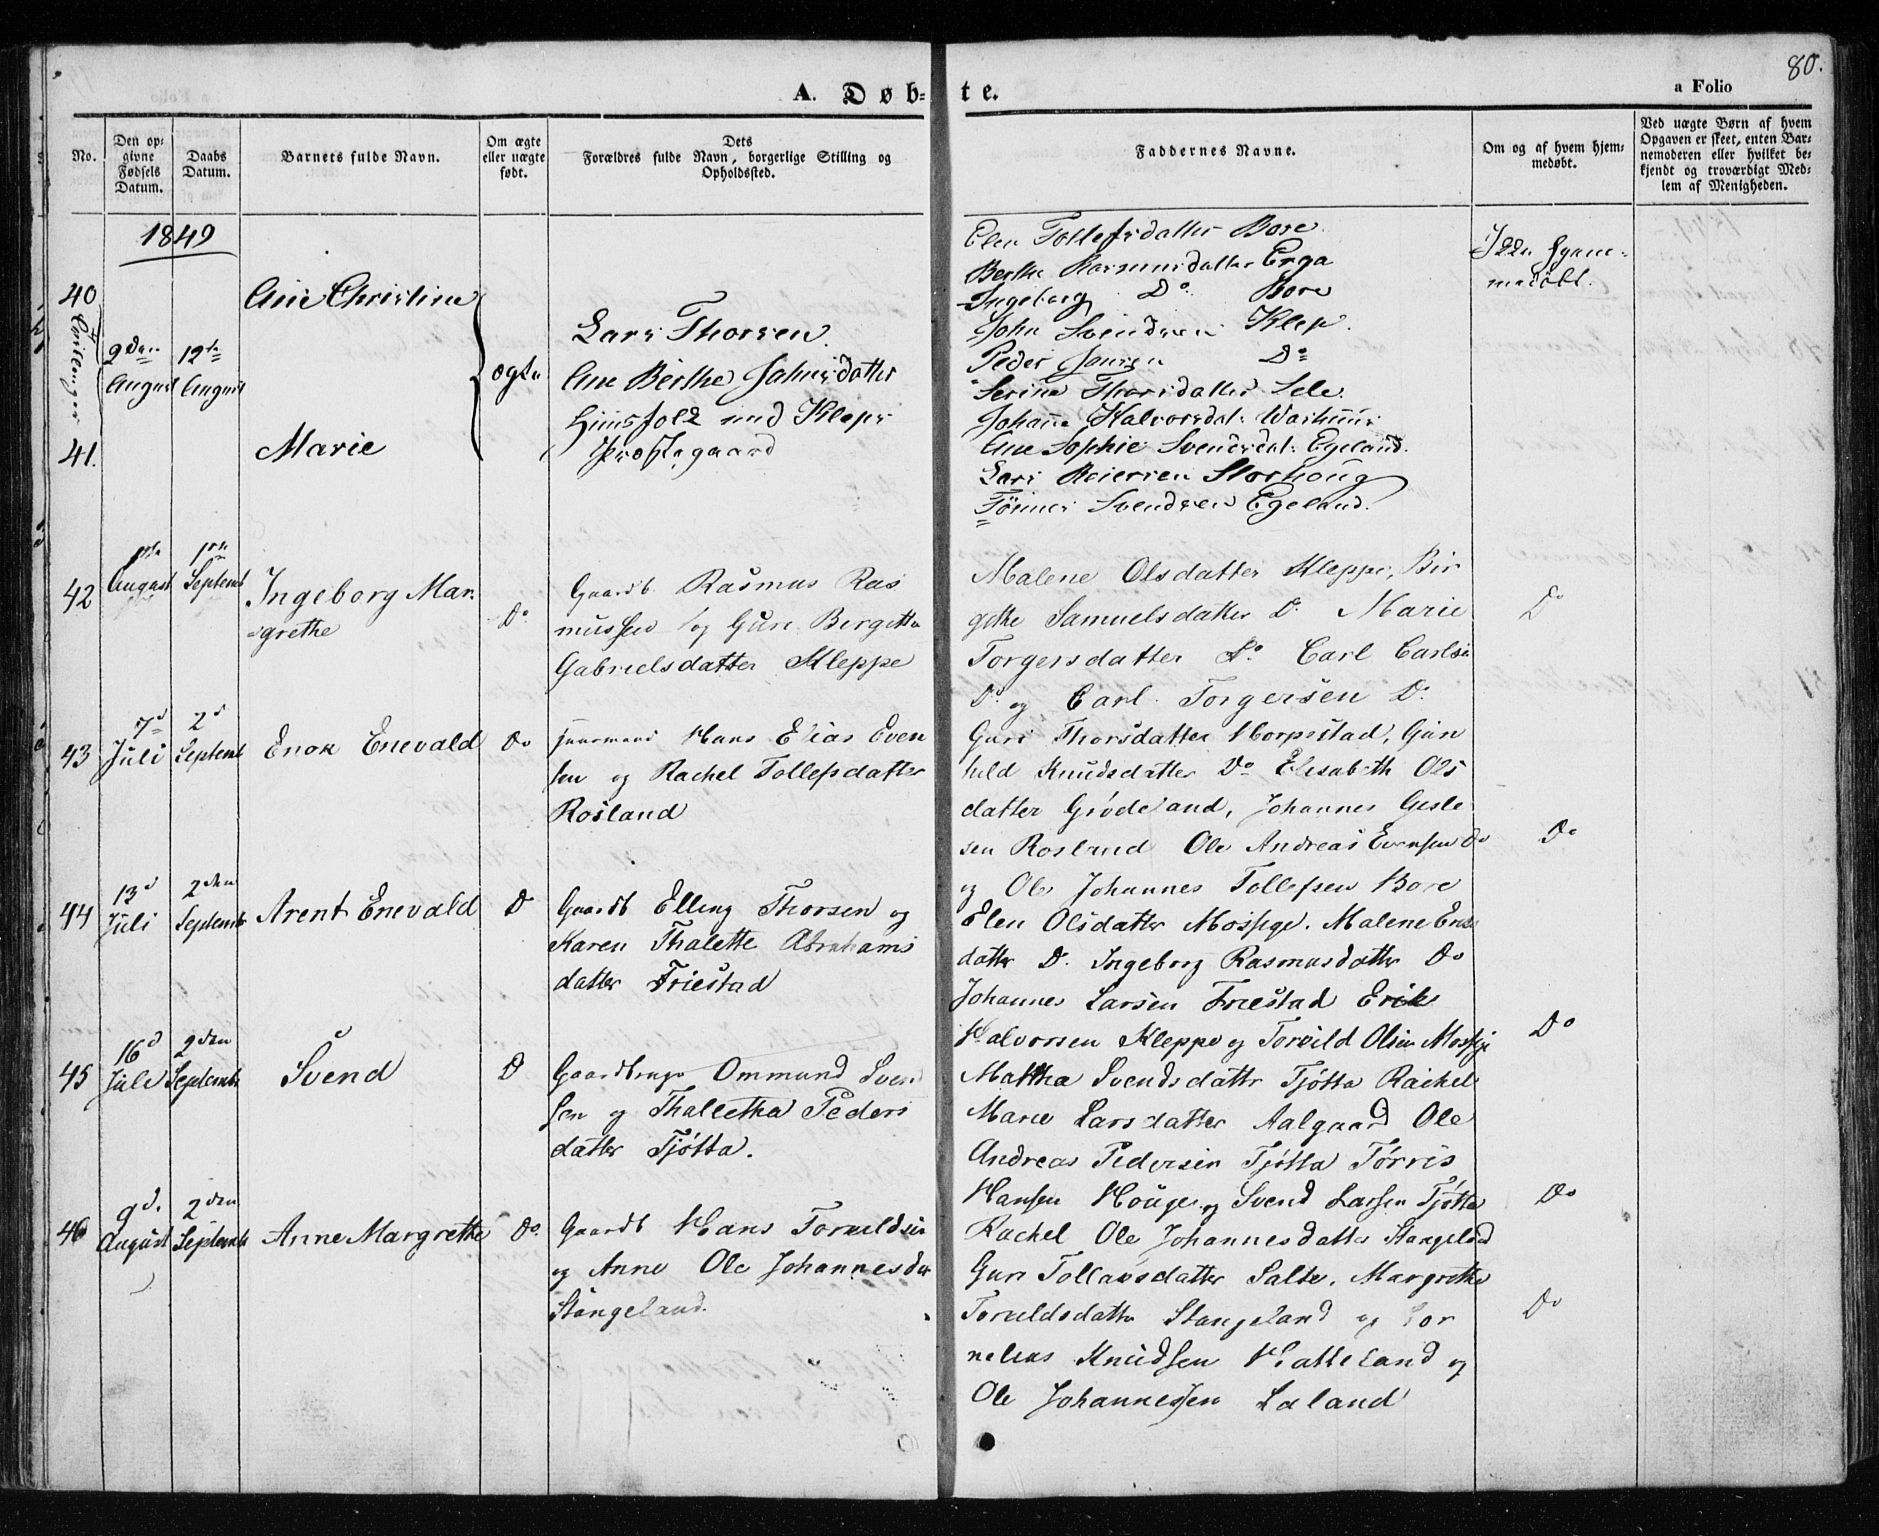 80.
A. Døb-
te.
a Folio
No.
Den op-
givne
Fødsels
Datum.
Daabs
Datum.
Barnets fulde Navn.
Om ægte
eller uægte
født.
Dets
Forældres fulde Navn, borgerlige Stilling og
Opholdssted.
Faddernes Navne.
Om og af hvem hjem-
medøbt.
Ved uægte Børn af hvem
Opgaven er skeet, enten Bar-
nemoderen eller hvilket be-
kjendt og troværdigt Med-
lem af Menigheden.
1849
40
41.
Tvillinger
9den
August
12te
August
Ane Christine
Marie
ægte
Lars Thorsen
Ane Berthe Jahnsdatter
Huusfolk ved Kleps
Præstegaard
Elen Tollefsdatter Bore
Berthe Rasmusdatter Erga
Ingeborg Do Bore
John Svendsen Klep.
Peder Jansen Do
Serine Thorsdatter Sele.
Johanne Halvorsdat:
Ane Sophie Svendsdat: Egeland.
Lars Reiersen Storhoug
Tønnes Svendsen Egeland.
Ikke hjem-
medøbt.
42
August
Septemb
Ingeborg Mar-
grethe
Do
Gaardb. Rasmus Ras
mussen og Guri Bergitte
Gabrielsdatter Kleppe
Malene Olsdatter Kleppe, Bir
githe Samuelsdatter Do Marie
Torgersdatter Do. Carl Carlsen
Do og Carl Torgersen Do
Do
43
7d
Juli
2d
Septemb
Enok Enevald
Do
Huusmand Hans Elias Even
sen og Rachel Tollefsdatter
Rosland
Guri Thorsdatter Horpestad, Gun
hild Knudsdatter Do Elisabeth Ols
datter Grødeland, Johannes Gisle
sen Rosland Ole Andreas Evensen Do
og Ole Johannes Tollefsen Bore
Do
44
13d
Juli
2den
Septemb
Arent Enevald
D
Gaardb Elling Thorsen og
Karen Thalette Abrahams
datter Friestad
Elen Olsdatter Mossige. Malene
datter D. Ingeborg Rasmusdatter Do
Johannes Larsen Friestad Erik
Halvorsen Kleppe og Torvild Olsen Mossige
Do
45
16d
Juli
2den
Septemb
Svend
D
Gaardbruger Ommund Svend
sen og Thalletha Peders
datter Tjøtta.
Martha Svendsdattr Tjøtta Rachel
Marie Larsdatter Aalgaard Ole
Andreas Pedersen Tjøtta Tørris
Hansen Houge og Svend Larsen Tjøtta
Do
46
9d.
August
2den
Septemb
Anne Margrethe
Do
Gaardb Hans Torkildsen
og Anne Ole Johannesdtr
Stangeland.
Rachel Ole Johannesdatter Stangeland
Guri Tollavsdatter Salte. Margrethe
Torkildsdatter Stangeland og Cor
nelius Knudsen Hatteland og
Ole Johannessen Laland
Do